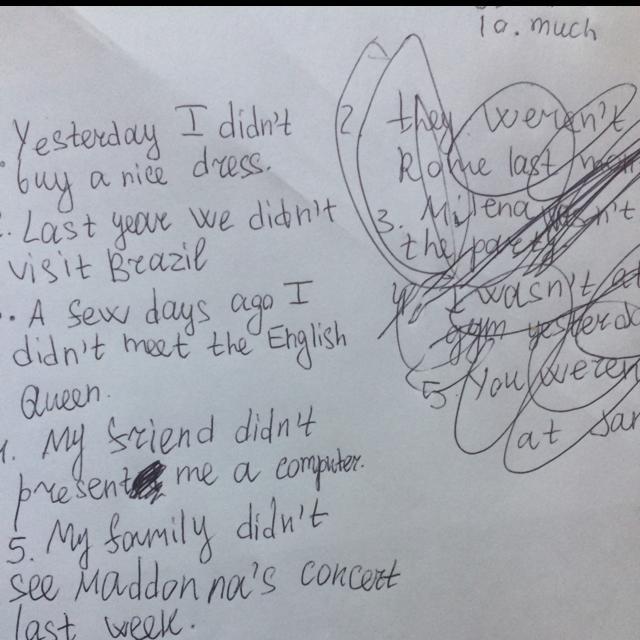 10. much
Yesterday I didn't
buy a nice dress.
Last year we didn't
visit Brazil
A few days ago I
didn't meet the English
Queen.
My friend didn't
present me a computer.
5. My family didn't
see Maddonna's concert
last week.
2. they weren't
Rome last
3. Milena
the party
I wasn't at
gym
5. You weren
at